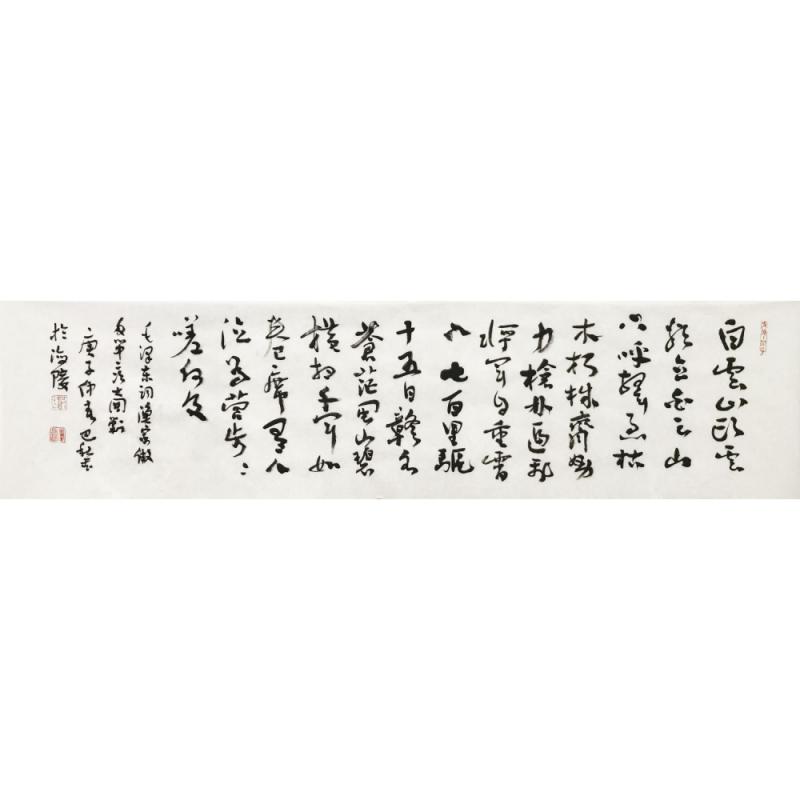 白雲山頭雲
欲立白云山
下呼聲急枯
木朽株齊努
力槍林逼飛
將軍自重霄
入七百里驅
十五日贛水
蒼茫閩山碧
橫掃千軍如
卷席有人
泣為營步〻
嗟何及
毛澤東詞漁家傲
反第二次大圍剿
庚子仲春巴
於涪陵